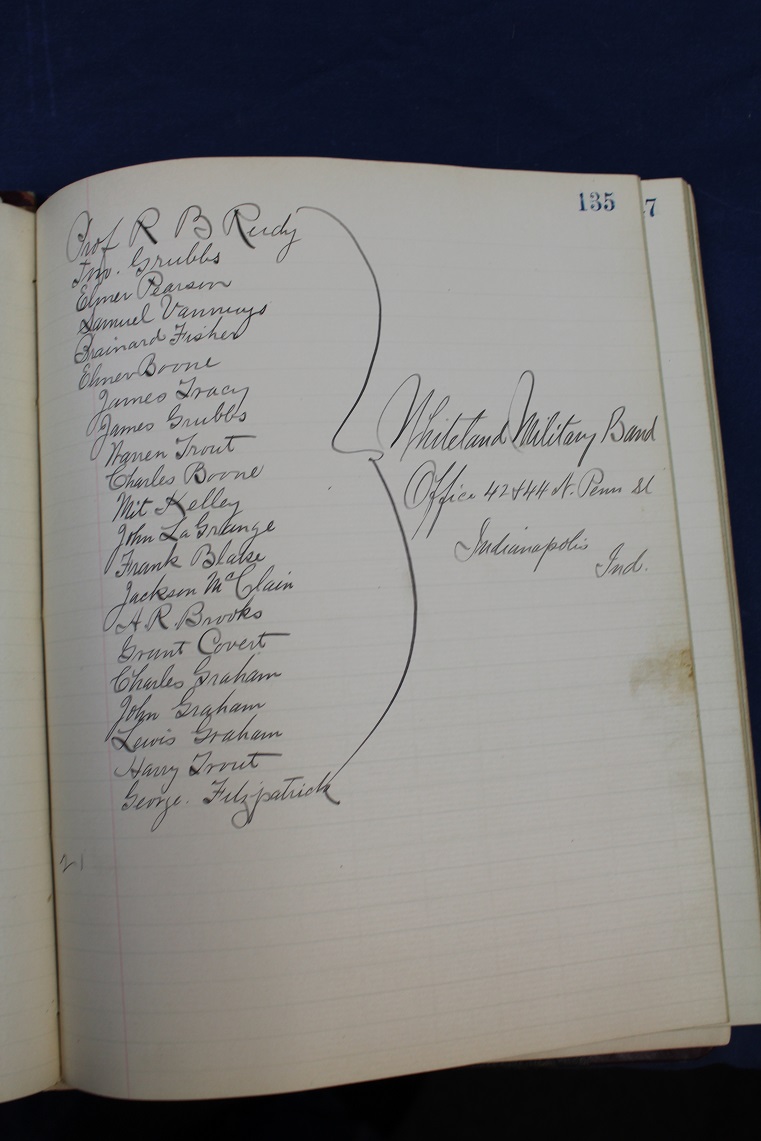 135
7
Prof R B Rudy
Jno. Grubbs
Elmer Pearson
Samuel Vannuys
Brainard Fisher
Elmer Boone
James Tracy
James Grubbs
Warren Trout
Charles Boone
Mit Kelley
John LaGrange
Frank Blaise
Jackson McClain
A. R. Brooks
Grant Covert
Charles Graham
John Graham
Lewis Graham
Harry Trout
George. Fitzpatrick
Whiteland Military Band
Office 42 & 44 N. Penn St
Indianapolis
Ind.
21